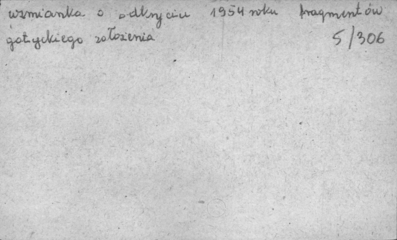 wzmianka o odkryciu 1954 roku fragmentów
gotyckiego założenia 5/306